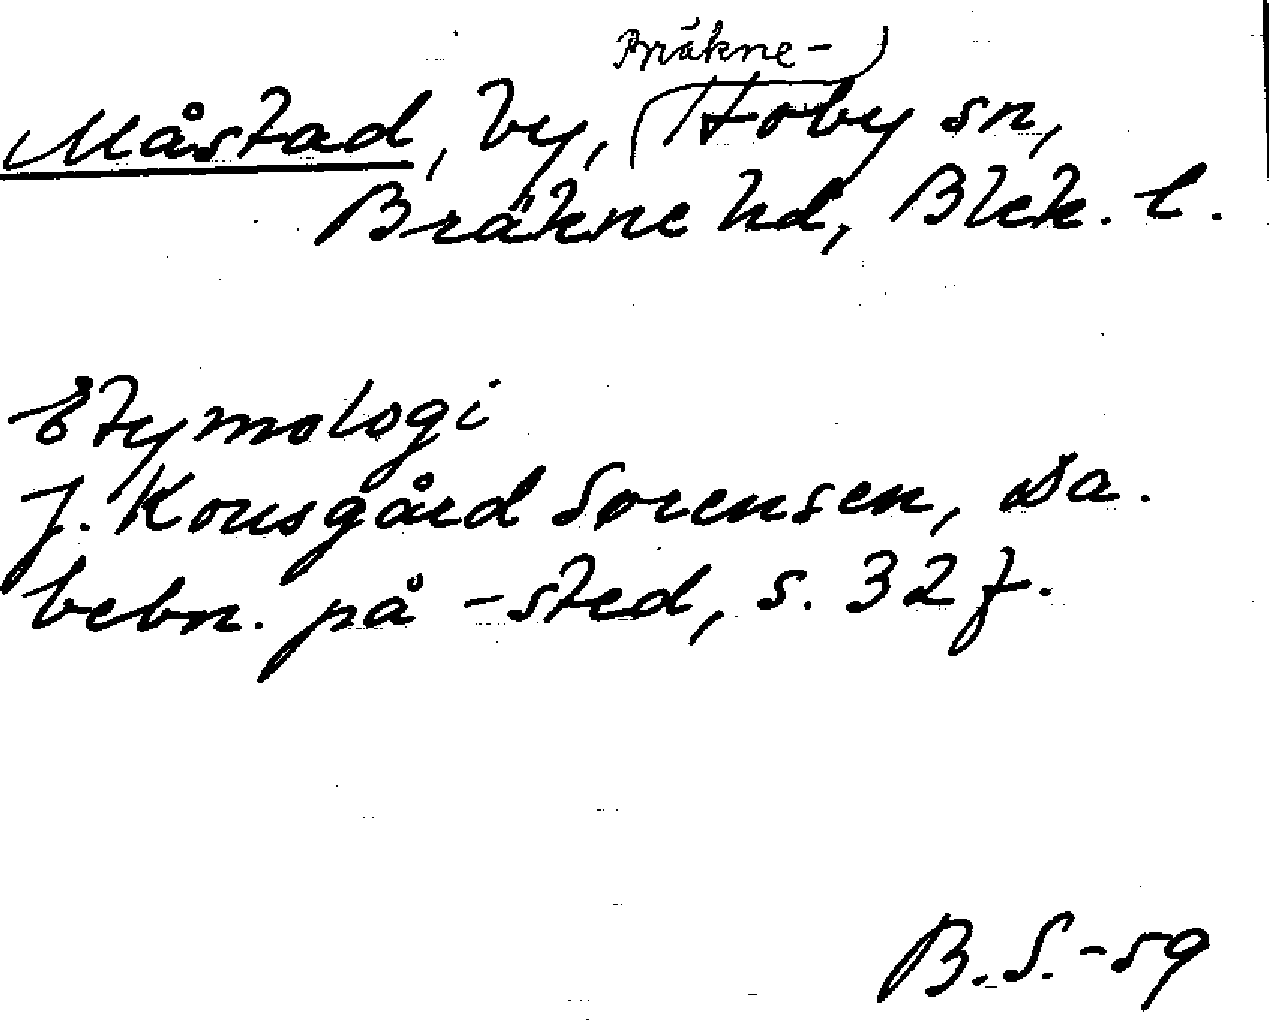 Bräkne-
Måstad, by, Hoby sn,
Bräkne hd, Blek. l.
Etymologi
J. Kousgård Sørensen, Da.
bebn. på -sted, s. 32 f.
B.S.-59